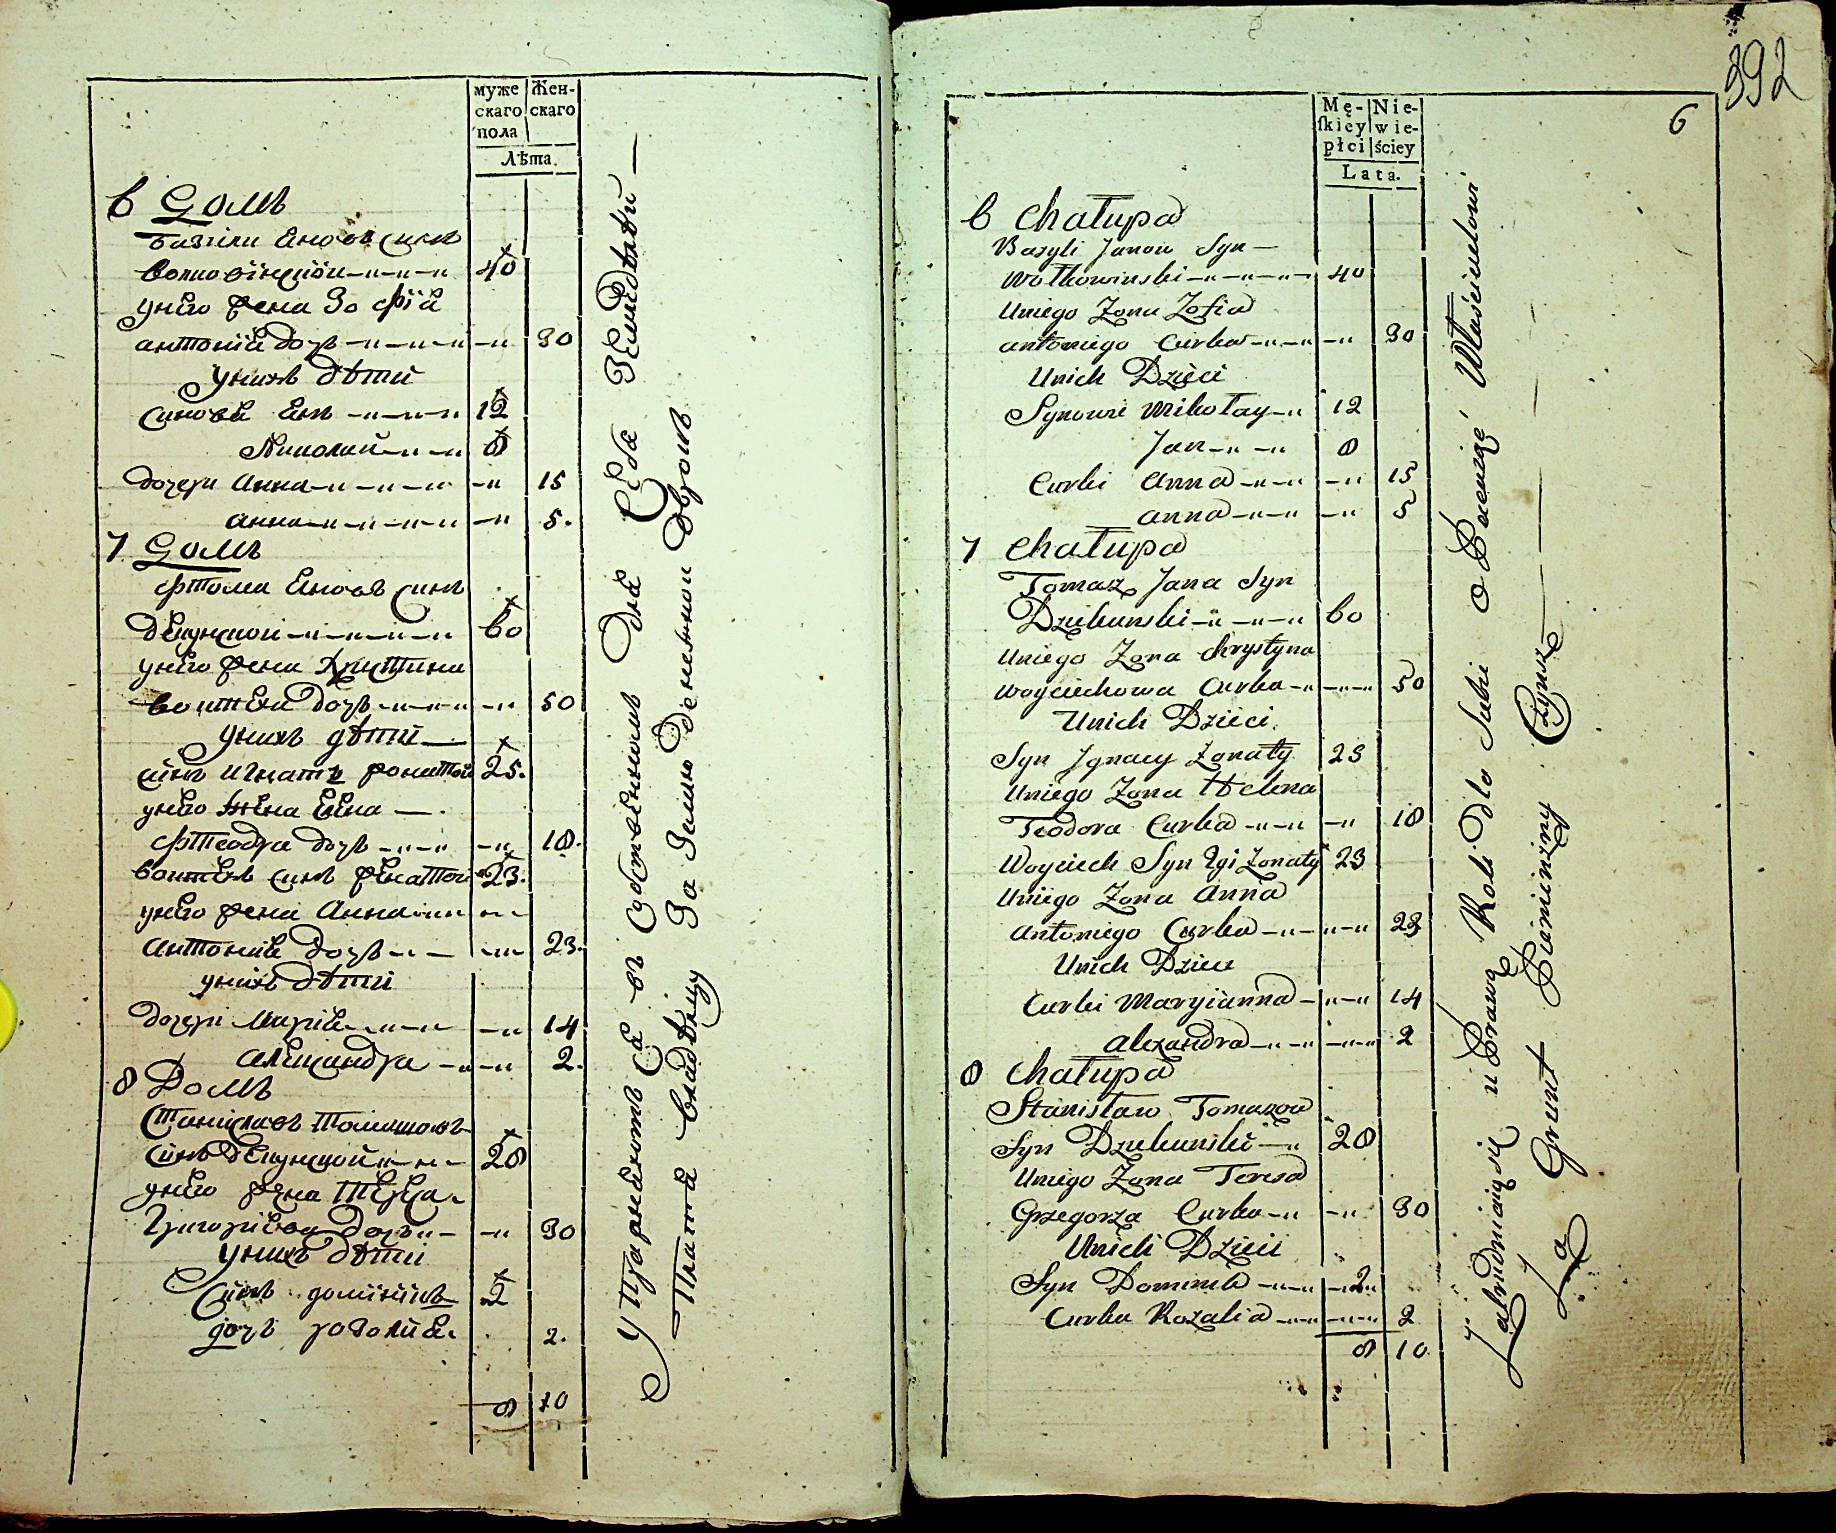 муже
скаго
пола
Жен-
скаго
Лѣта.
6 Домъ
Базили Яновъ синъ
волковинский 40
унего жена Зофія
антонія дочь 30
унихъ дѣти
синовя Янъ 12
Николай 8
дочери Анна 15
анна 5.
7 Домъ
Фтома Яновъ Синъ
60
унего жена Христина
дочь 50
унихъ дѣти
синъ Игнатъ женатой 25.
унего жена Елена
Фтеодра дочь 18.
синъ женатой 23.
унего жена Анна
антонія дочь 23.
унихъ дѣти
дочери Марія 14
александра 2.
8 Домъ
Станіславъ Томашовъ
синъ 28
унего жена Тереса
Григорієва дочь 30
унихъ дѣти
Синъ доминикъ 2
дочь розалия. 2.
8 10
Упражняютъ ся въ Собственномъ Для Себя Земледѣлии
Платя владѣлцу За Землю денежной Оброкъ
392
6
Mę-
skiey
płci
Nie-
wie-
ściey
Lata.
6 Chałupa
Bazyli Janow Syn
Wołkowinski 40
Uniego Zona Zofia
antoniego Curka 30
Unich Dzieci
Synowie Mikołay 12
Jan 8
Curki Anna 15
anna 5
7 Chałupa
Tomasz Jana Syn
Dziekunski 60
Uniego Zona Chrystyna
Woyciechowa Curka 50
Unich Dzieci
Syn Jgnacy Zonaty 25
Uniego Zona Helena
Teodora Curka 18
Woyciech Syn Zonaty 23
Uniego Zona Anna
Antoniego Curka 23
Unich Dzieci
Curki Maryianna 14
alexandra 2
8 Chałupa
Stanisław Tomaszow
Syn Dziekunski 28
Uniego Zona Teresa
Grzegorza Curka 30
Unich Dzieci
Syn Dominik 2
Curka Rozalia 2
8 10
Zatrudniaią się uPrawą Roli dla Siebie o Płacaiąc Właścicielowi
Za Grunt Pieniężny Czynsz